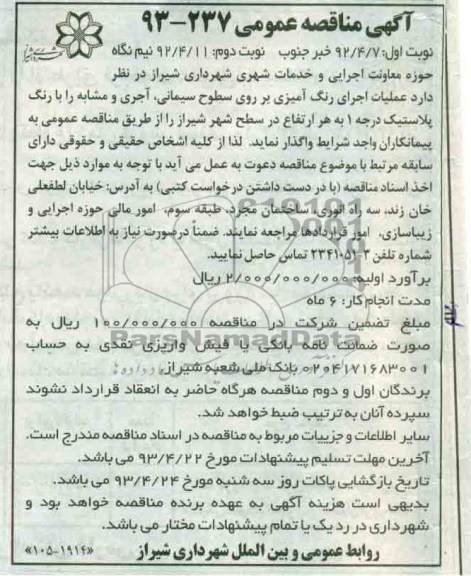 آگهی مناقصه عمومی ۲۳۷-۹۳
نوبت اول: ۹۲/۴/۷ خبر جنوب نوبت دوم: ۹۲/۴/۱۱ نیم نگاه
حوزه معاونت اجرایی و خدمات شهری شهرداری شیراز در نظر
دارد عملیات اجرای رنگ آمیزی بر روی سطوح سیمانی، آجری و مشابه را با رنگ
پلاستیک درجه ۱ به هر ارتفاع در سطح شهر شیراز را از طریق مناقصه عمومی به
پیمانکاران واجد شرایط واگذار نماید. لذا از کلیه اشخاص حقیقی و حقوقی دارای
سابقه مرتبط با موضوع مناقصه دعوت به عمل می آید با توجه به موارد ذیل جهت
اخذ اسناد مناقصه (با در دست داشتن درخواست کتبی) به آدرس: خیابان لطفعلی
خان زند، سه راه انوری، ساختمان مجرد، طبقه سوم، امور مالی حوزه اجرایی و
زیباسازی، امور قراردادها مراجعه نمایند. ضمناً درصورت نیاز به اطلاعات بیشتر
شماره تلفن ۳-۲۳۴۱۰۵۱ تماس حاصل نمایید.
برآورد اولیه: ۲/۰۰۰/۰۰۰/۰۰۰ ریال
مدت انجام کار: ۶ ماه
مبلغ تضمین شرکت در مناقصه ۱۰۰/۰۰۰/۰۰۰ ریال به
صورت ضمانت نامه بانکی یا فیش واریزی نقدی به حساب
۰۲۰۴۱۷۱۶۸۳۰۰۱ بانک ملی شعبه شیراز.
برندگان اول و دوم مناقصه هرگاه حاضر به انعقاد قرارداد نشوند
سپرده آنان به ترتیب ضبط خواهد شد.
سایر اطلاعات و جزییات مربوط به مناقصه در اسناد مناقصه مندرج است.
آخرین مهلت تسلیم پیشنهادات مورخ ۹۳/۴/۲۲ می باشد.
تاریخ بازگشایی پاکات روز سه شنبه مورخ ۹۳/۴/۲۴ می باشد.
بدیهی است هزینه آگهی به عهده برنده مناقصه خواهد بود و
شهرداری در رد یک یا تمام پیشنهادات مختار می باشد.
روابط عمومی و بین الملل شهرداری شیراز «۱۰۵-۱۹۱۶»
ParsNamadData